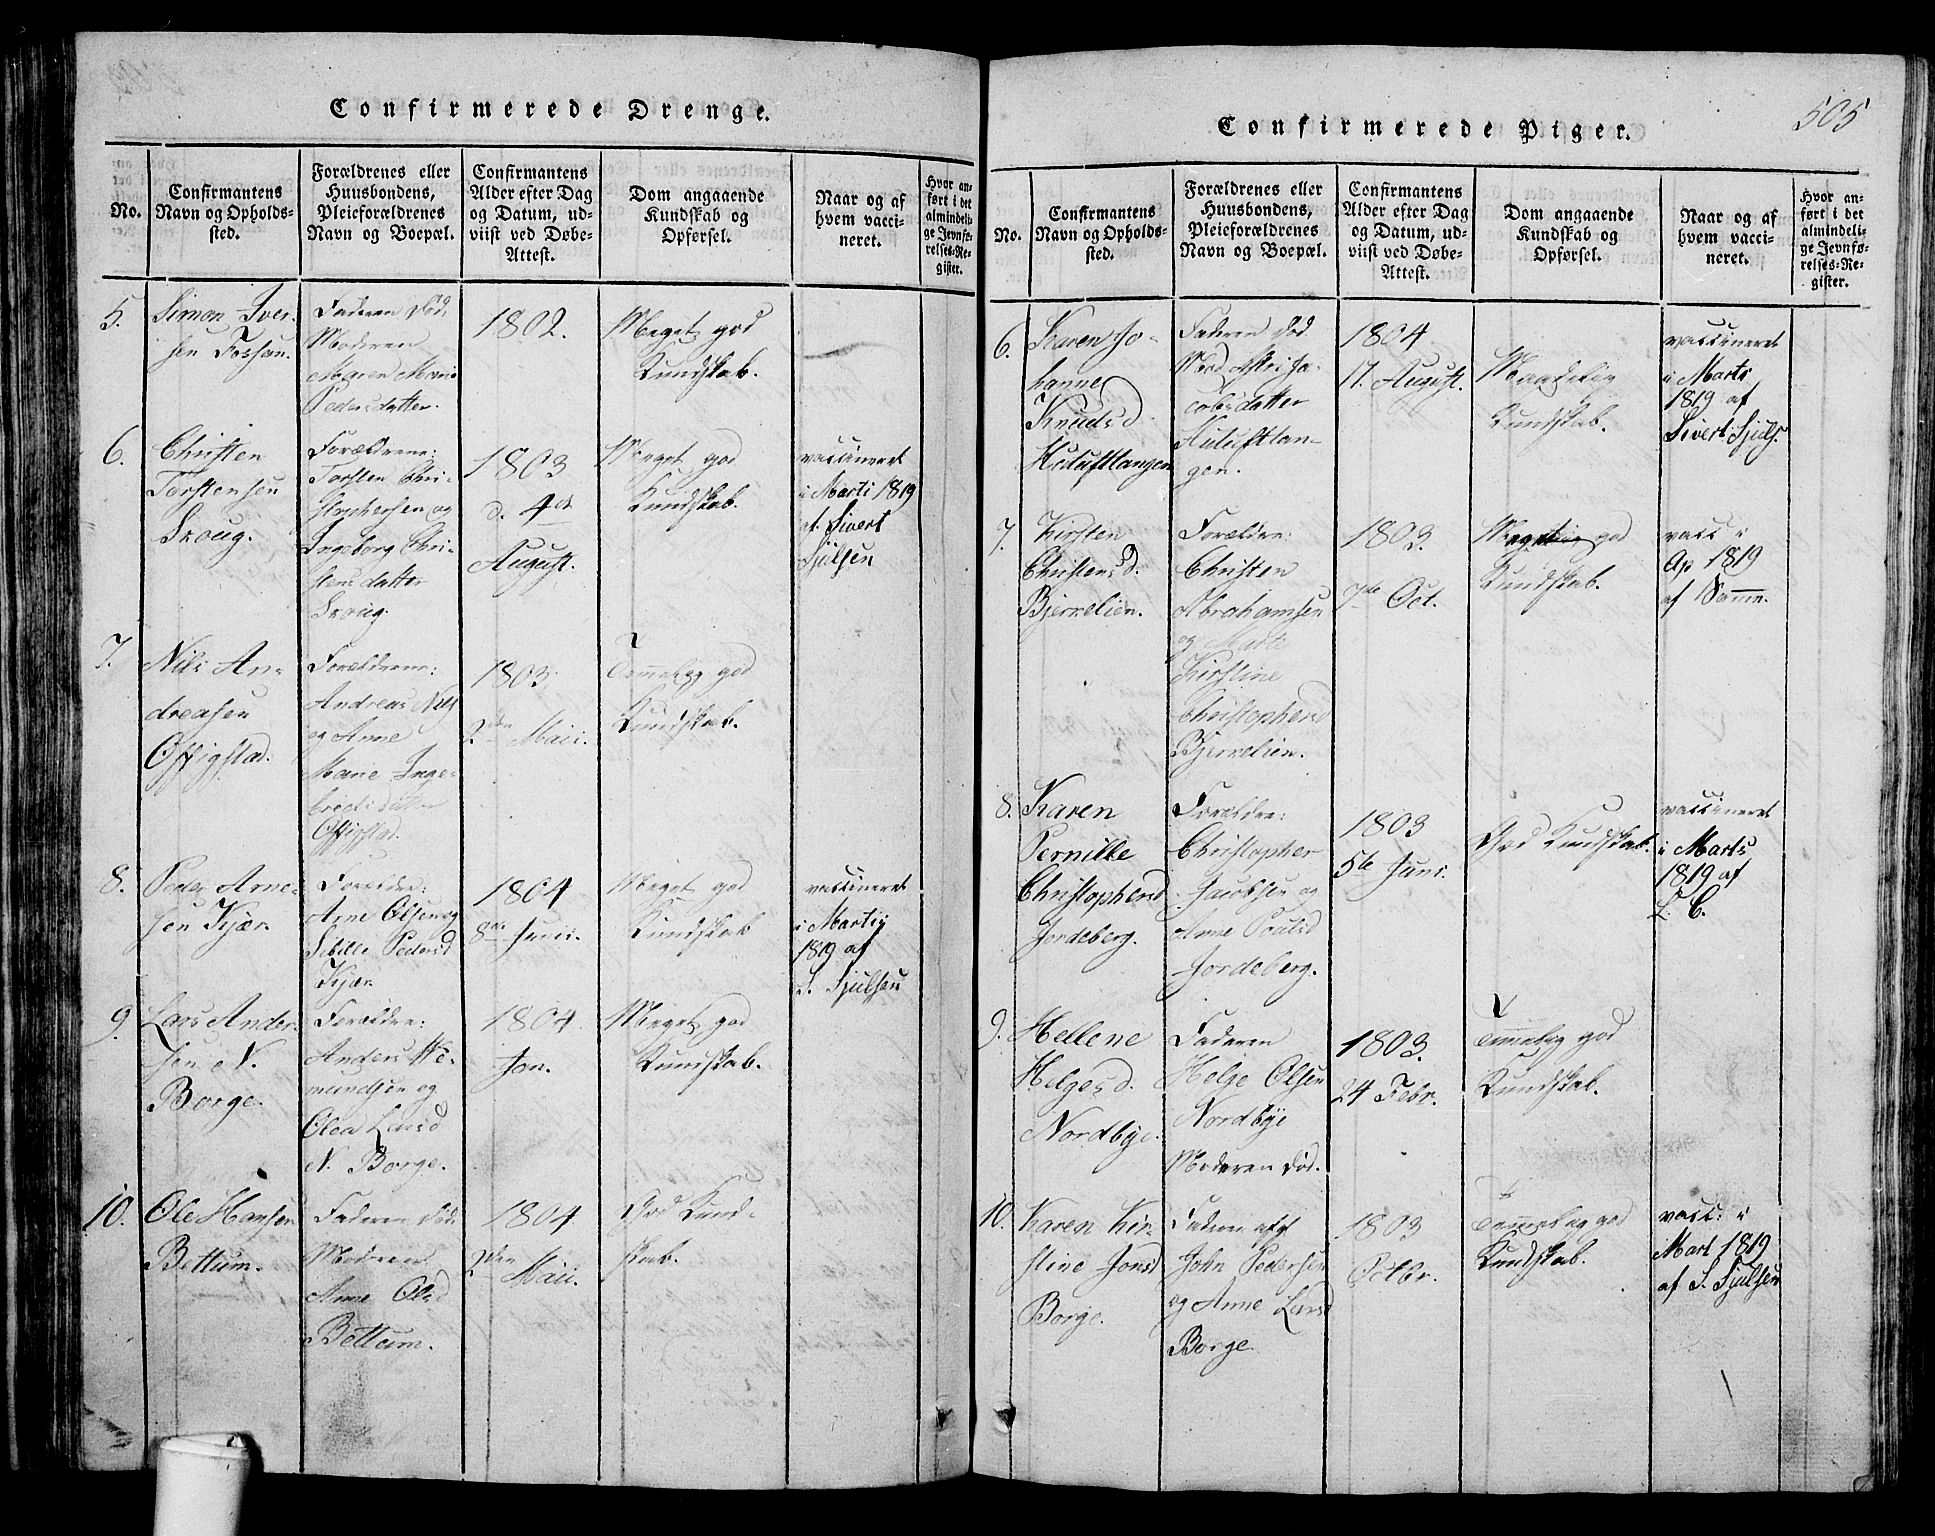 Confirmerede Drenge.
No.
Confirmantens
Navn og Opholds-
sted.
Forældrenes eller
Huusbondens,
Pleieforældrenes
Navn og Boepæl.
Confirmantens
Alder efter Dag
og Datum, ud-
viist ved Døbe-
Attest.
Dom angaaende
Kundskab og
Opførsel.
Naar og af
hvem vacci-
neret.
Hvor an-
ført i det
almindeli-
ge Jevnfø-
relses-Re-
gister.
5.
Simon Iver-
sen Fossan.
Faderen død,
Moderen
Maren Marie
Pedersdatter.
1802.
Meget god
Kundskab.
6.
Christen
Torstensen
Skoug.
Forældrene:
Torsten Chri-
stophersen og
Ingeborg Chri-
stensdatter
Skoug.
1803
d. 4de
August.
Meget god
Kundskab.
vaccineret
i Marti 1819
af Sivert
Sjulsen
7.
Nils An-
dreasen
Offigstad.
Forældrene:
Andreas Nils
og Anne
Marie Inge-
bredsdatter
Offigstad.
1803.
2den Maii.
Temmelig god
Kundskab.
8.
Peder Arne-
sen Kjær.
Forældre:
Arne Olsen og
Sibille Pedersd
Kjær.
1804
8de Juni.
Meget god
Kundskab
vaccineret
i Martij
1819 af
S. Sjulsen
9.
Lars Ander-
sen N.
Borge.
Forældre:
Anders We-
mundsen og
Olea Larsd
N. Borge.
1804.
Jan.
Meget god
Kundskab.
10.
Ole Hansen
Bettum.
Faderen død
Moderen
Anne Olsd
Bettum.
1804
2den Maii.
God Kund-
skab.
505
Confirmerede Piger.
No.
Confirmantens
Navn og Opholds-
sted.
Forældrenes eller
Huusbondens,
Pleieforældrenes
Navn og Boepæl.
Confirmantens
Alder efter Dag
og Datum, ud-
viist ved Døbe-
Attest.
Dom angaaende
Kundskab og
Opførsel.
Naar og af
hvem vacci-
neret.
Hvor an-
ført i det
almindelig-
ge Jevnfø-
relses-Re-
gister.
6.
Karen Jo-
hanne
Knudsd.
Hutuftlangen
Faderen død
Mod. Astri Ja-
cobsdatter
Hutuftlan-
gen.
1804
17. August.
Maadelig
Kundskab.
vaccineret
i Marti
1819 af
Sivert Sjuls.
7.
Kirsten
Christensd.
Bjerrelien.
Forældre:
Christen
Abrahamsen
og Marte
Kirstine
Christophersd
Bjerrelien.
1803.
7de Oct.
Meget god
Kundskab.
vacc i
Ap 1819
af Samme.
8.
Karen
Pernille
Christophersd
Jordeberg.
Forældre:
Christopher
Jacobsen og
Anne Poulsd
Jordeberg.
1803
5te Juni.
God Kundskab.
vaccineret
i Marts
1819 af
L. C.
9.
Hellene
Helgesd.
Nordbÿe.
Faderen
Helge Olsen
Nordbÿe
Moderen død.
1803.
24 Febr.
Temmelig god
Kundskab.
10.
Karen Kir-
stine Jonsd
Borge.
Faderen afg
John Pedersen
og Anne Larsd
Borge.
1803
Octbr.
Temmelig god
Kundskab.
vacc: i
Mart 1819
af S. Sjulsen